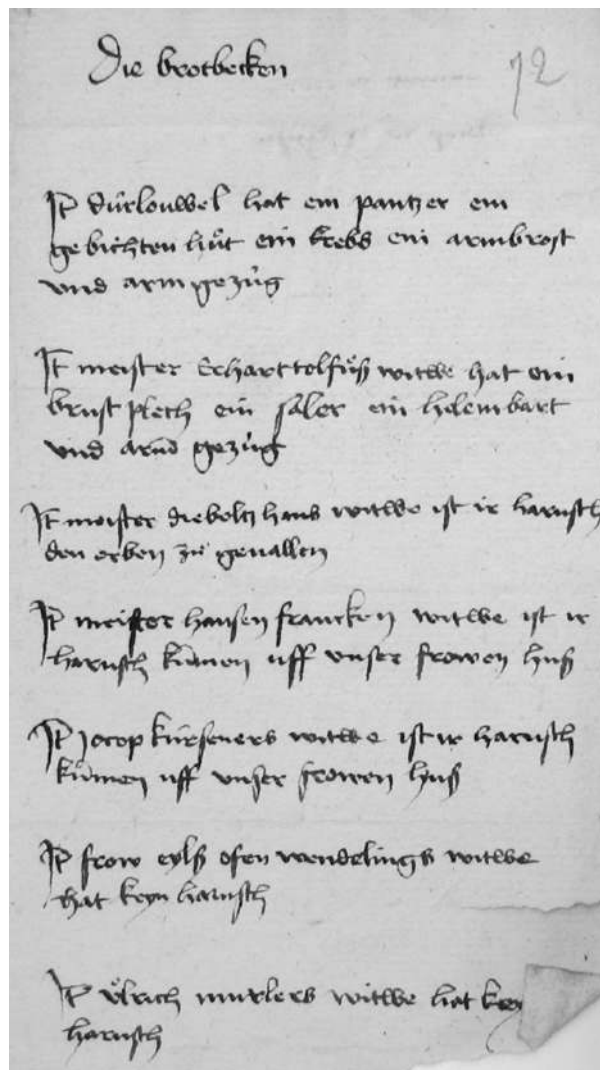 Die brotbecken
72
It dürlouwel hat ein pantzer ein
gebichten hůt ein krebs ein armbrost
vnd armgezüg
It meister Erhart tolfůß witwe hat ein
brust plech ein saler ein helembart
vnd arm gezüg
It meister dieboltz hans witwe ist ir harnsch
den erben zů geuallen
It meister hansen francken witwe ist ir
harnsch kumen uff vnser frowen huß
It jocop kürseners witwe ist ir harnsch
kumen uff vnser frowen huß
It frow eylß ofen wendelings witwe
hat keyn harnsch
It ůlrich murlers witwe hat key
harnsch